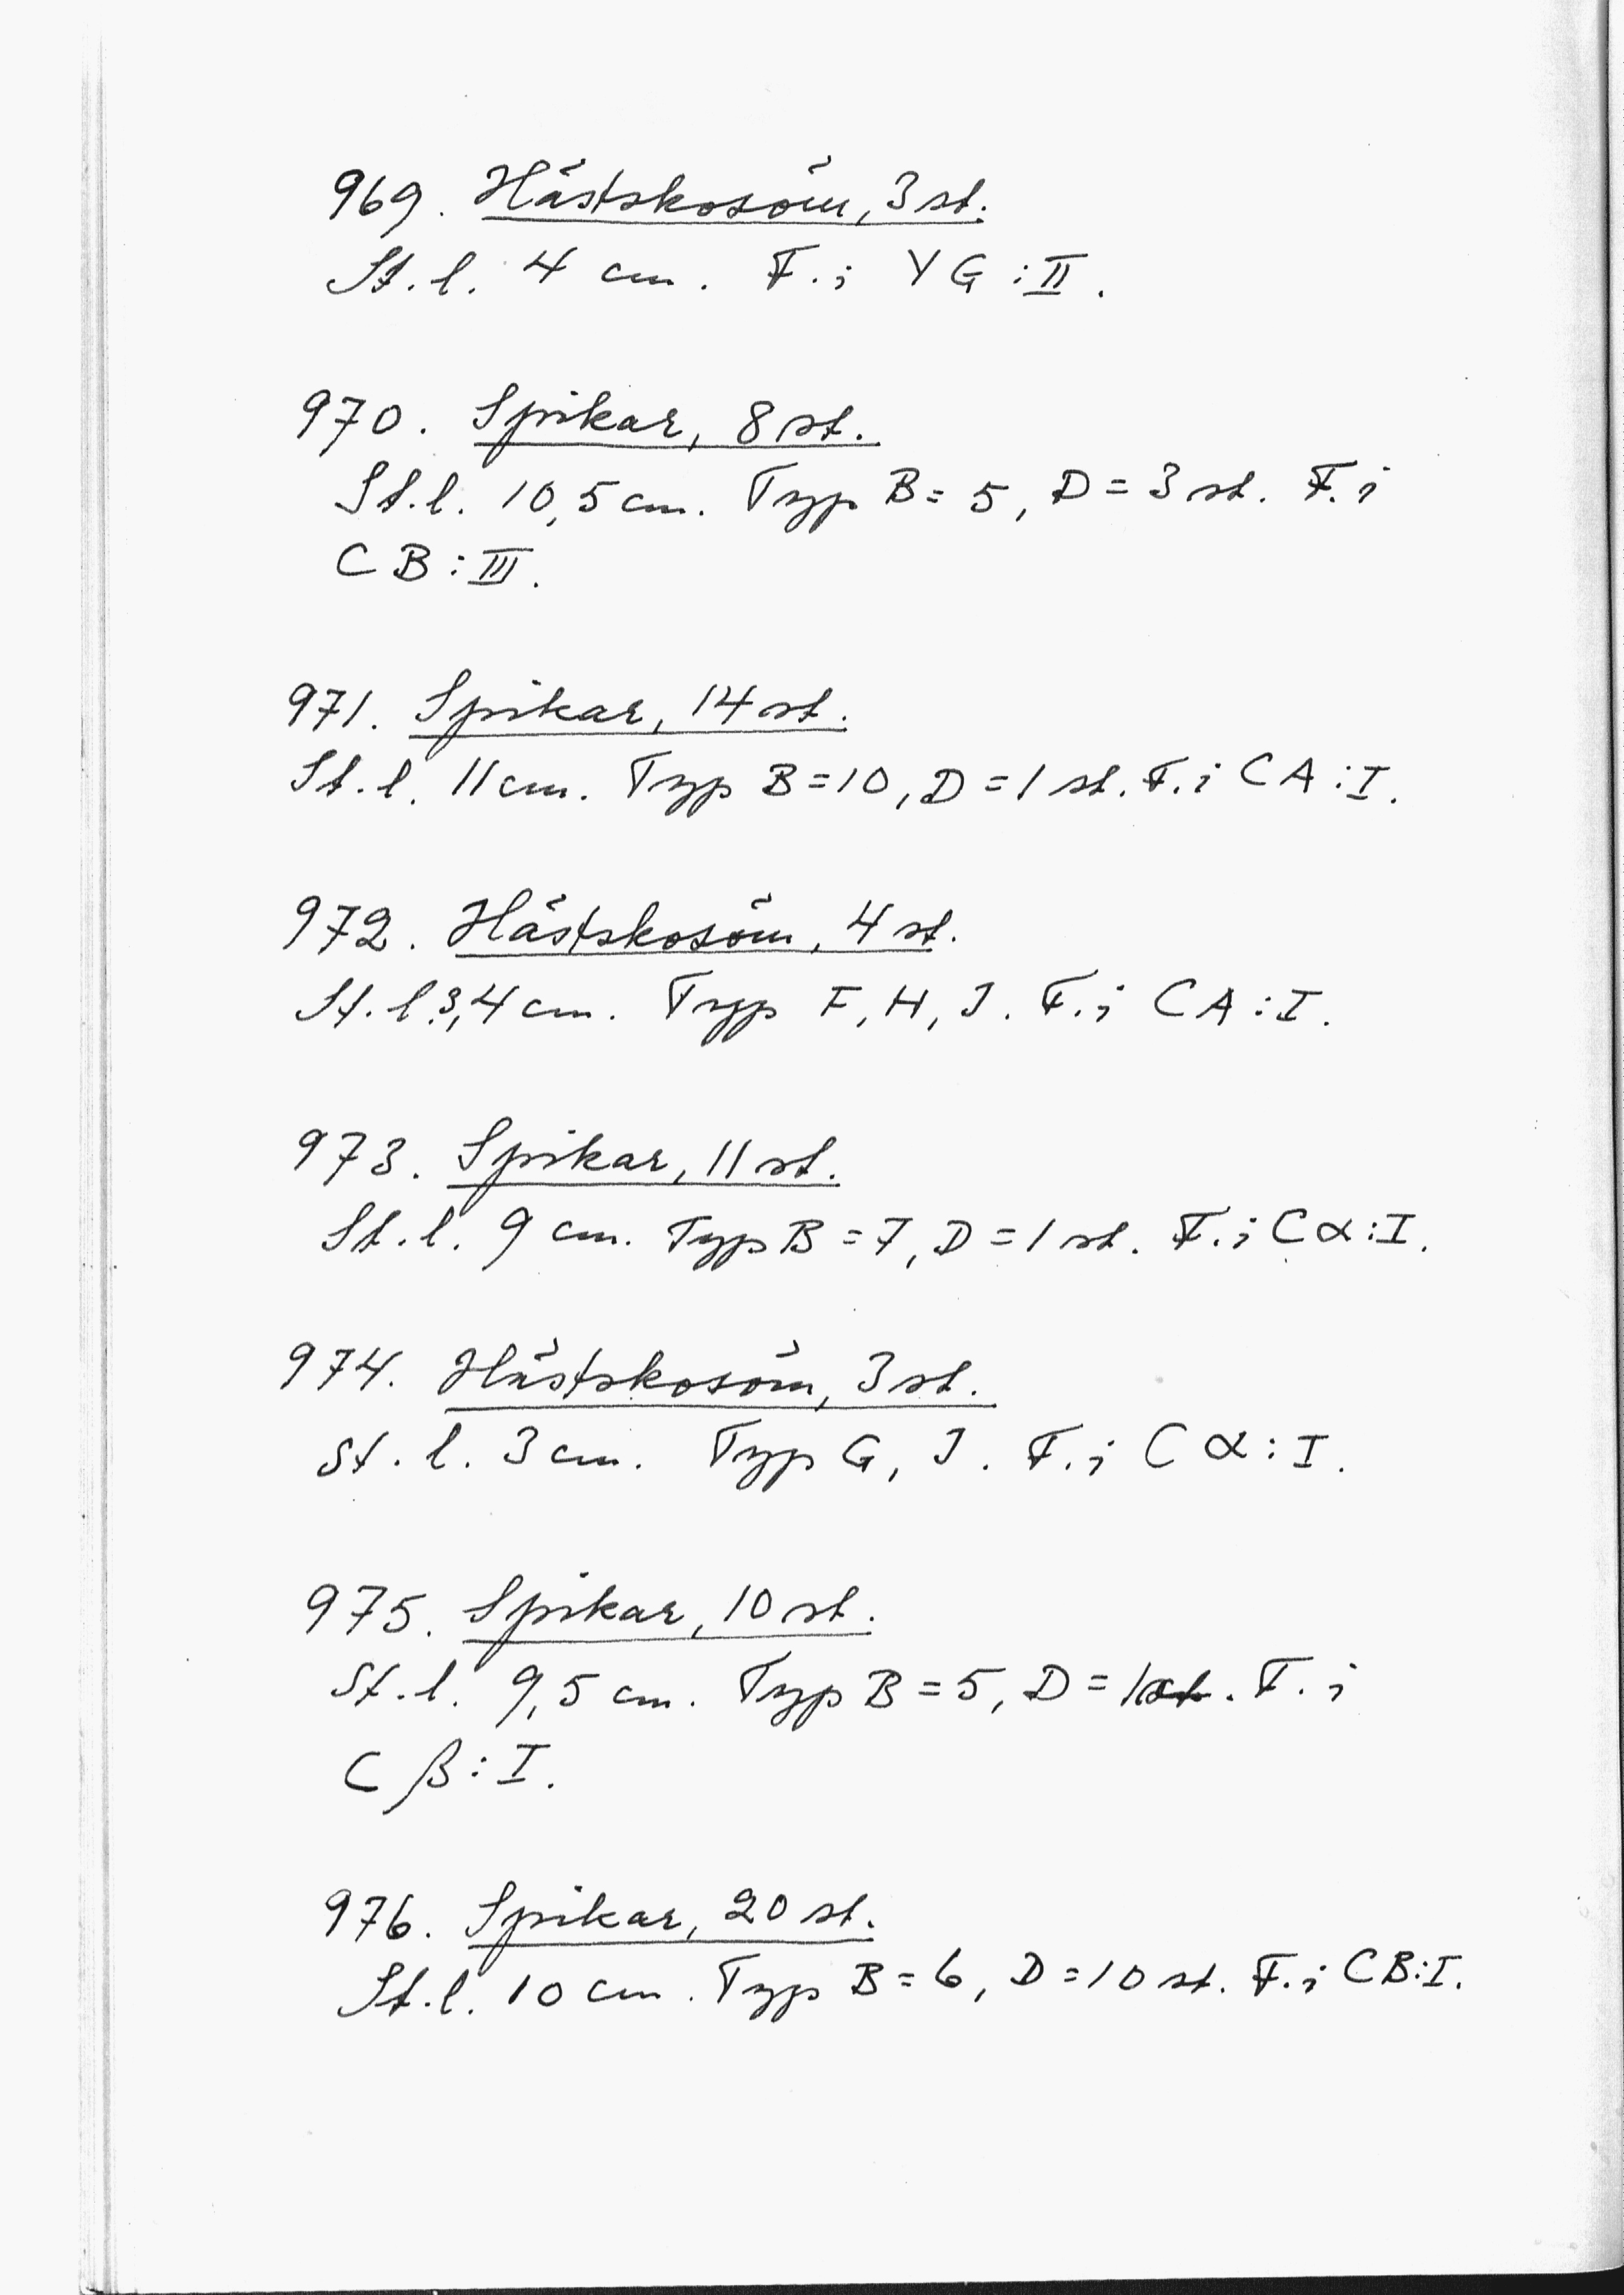 969. Hästskosöm, 3 st.
St. l. 4 cm. F. i YG:II.
970. Spikar, 8 st.
St. l. 10,5 cm. Typ B = 5, D = 3 st. F. i
CB:III.
971. Spikar, 14 st.
St. l. 11 cm. Typ B = 10, D = 1 st. F. i CA:I.
972. Hästskosöm, 4 st.
St. l. 3,4 cm. Typ F, H, J. F. i CA:I.
973. Spikar, 11 st.
St. l. 9 cm. Typ B = 7, D = 1 st. F. i Cα:I.
974. Hästskosöm, 3 st.
St. l. 3 cm. Typ G, J. F. i Cα:I.
975. Spikar, 10 st.
St. l. 9,5 cm. Typ B = 5, D = 1 st. F. i
Cβ:I.
976. Spikar, 20 st.
St. l. 10 cm. Typ B = 6, D = 10 st. F. i CB:I.